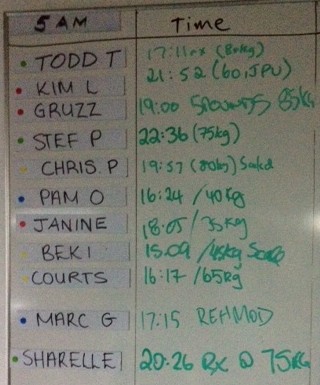 5 AM Time
TODD T 17:11 rx (80kg)
KIM L 21:52 (60, JPU)
GRUZZ 19:00 85kg
STEF P 22:36 (75kg)
CHRIS. P 19:57 (80kg)
PAM O 16:24 / 40kg
JANINE 18.05 / 35kg
BEKI 15.09 / 45kg
COURTS 16:17 / 65kg
MARC G 17:15 REHMOD
SHARELLE 20:26 RX @ 75KG